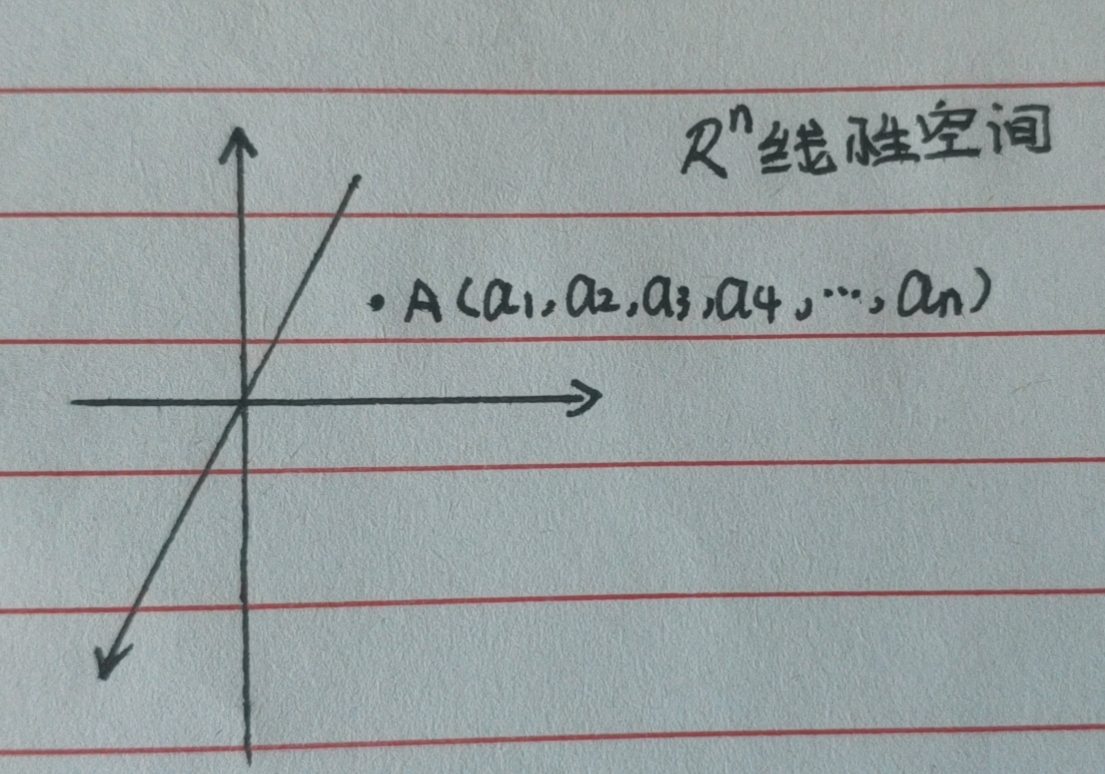 Rⁿ线性空间
A(a₁,a₂,a₃,a₄,…,aₙ)